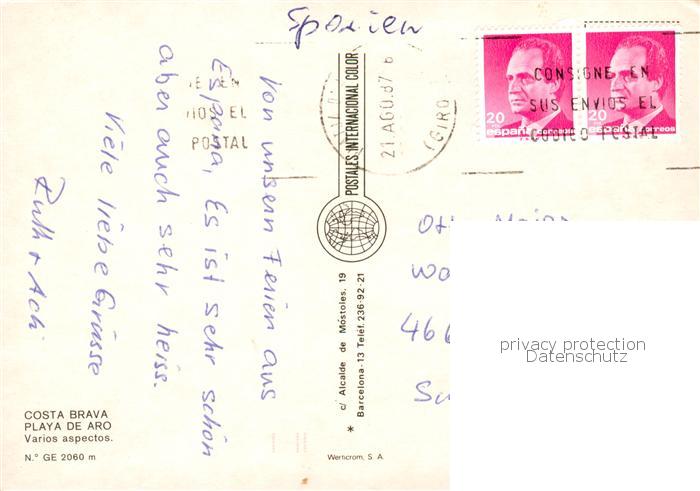 Spanien
CONSIGNE EN
SUS ENVIOS EL
CODIGO POSTAL
20
españa correos
20
españa correos
21 AGO.87
(GIRO
NE EN
IOS EL
POSTAL
Von unsern Ferien aus
España, Es ist sehr schön
aber auch sehr heiss.
Viele liebe Grüsse
Ruth + Achi
POSTALES INTERNACIONAL COLOR
c/ Alcalde de Móstoles, 19
Barcelona-13 Teléf. 236-92-21
Otto Meier
466
privacy protection
Datenschutz
COSTA BRAVA
PLAYA DE ARO
Varios aspectos.
N.° GE 2060 m
Werticrom, S. A.